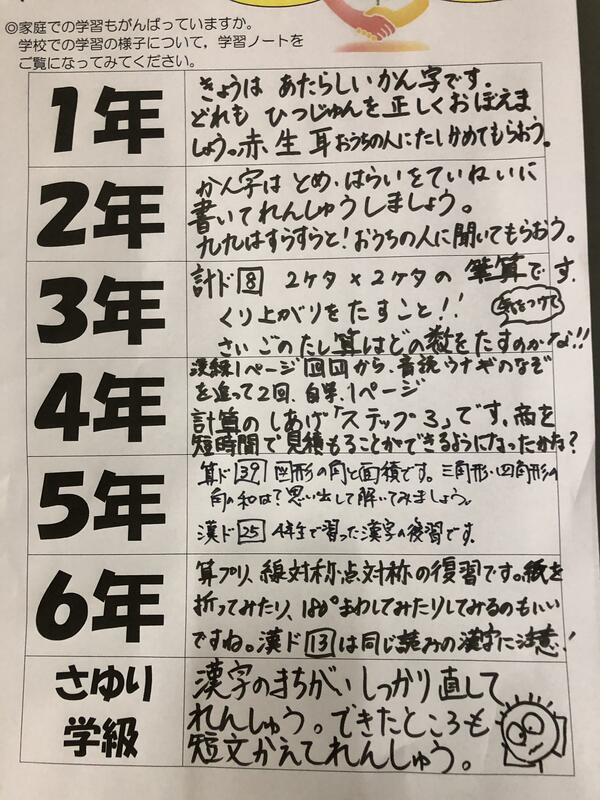 ◎家庭での学習もがんばっていますか。
学校での学習の様子について，学習ノートを
ご覧になってみてください。
1年
きょうは あたらしいかん字です。
どれも ひつじゅんを正しくおぼえま
しょう。赤、生 耳 おうちの人にたしかめてもらおう。
2年
かん字は とめ・はらいをていねいに
書いてれんしゅうしましょう。
九九はすらすらと！おうちの人に聞いてもらおう。
3年
計ド 8 2ケタ×2ケタの 筆算です。
くり上がりをたすこと！！ 気をつけて
さいごのたし算はどの数をたすのかな!!
4年
漢練1ページ から、音読ウナギのなぞ
を追って2回、自学、1ページ
計算のしあげ「ステップ3」です。商を
短時間で見積もることができるようになったかな？
5年
算ド 39 図形の角と面積です。三角形・四角形の
角の和は？思い出して解いてみましょう。
漢ド 25 4年生で習った漢字の復習です。
6年
算プリ、線対称・点対称の復習です。紙を
折ってみたり、180°まわしてみたりしてみるのもいい
ですね。漢ド 13 は同じ読みの漢字に注意！
さゆり
学級
漢字のまちがいしっかり直して
れんしゅう。できたところも
短文かえてれんしゅう。